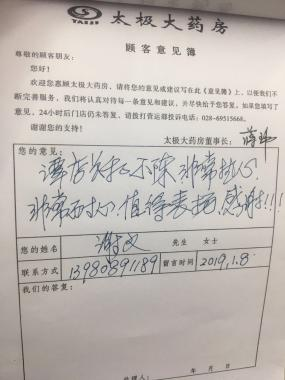 TAIJI
太极大药房
顾客意见簿
尊敬的顾客朋友:
您好!
欢迎您惠顾太极大药房、请将您的意见或建议写在此《意见簿》上、以便我们不
断完善服务, 我们将认真对待每一条意见和建议, 并尽快给予您答复。如果您填写了
意见, 24小时后门店仍未答复、请拨打营运部投诉电话: 028-69515668.
谢谢您的支持!
太极大药房董事长:
您的意见:
小陈 非常热心
非常耐心, 值得表扬, 感谢!!!
您的姓名 谢 先生 女士
联系方式 13980891189 留言时间 2019.1.8.
我们的答复:
年 月 日